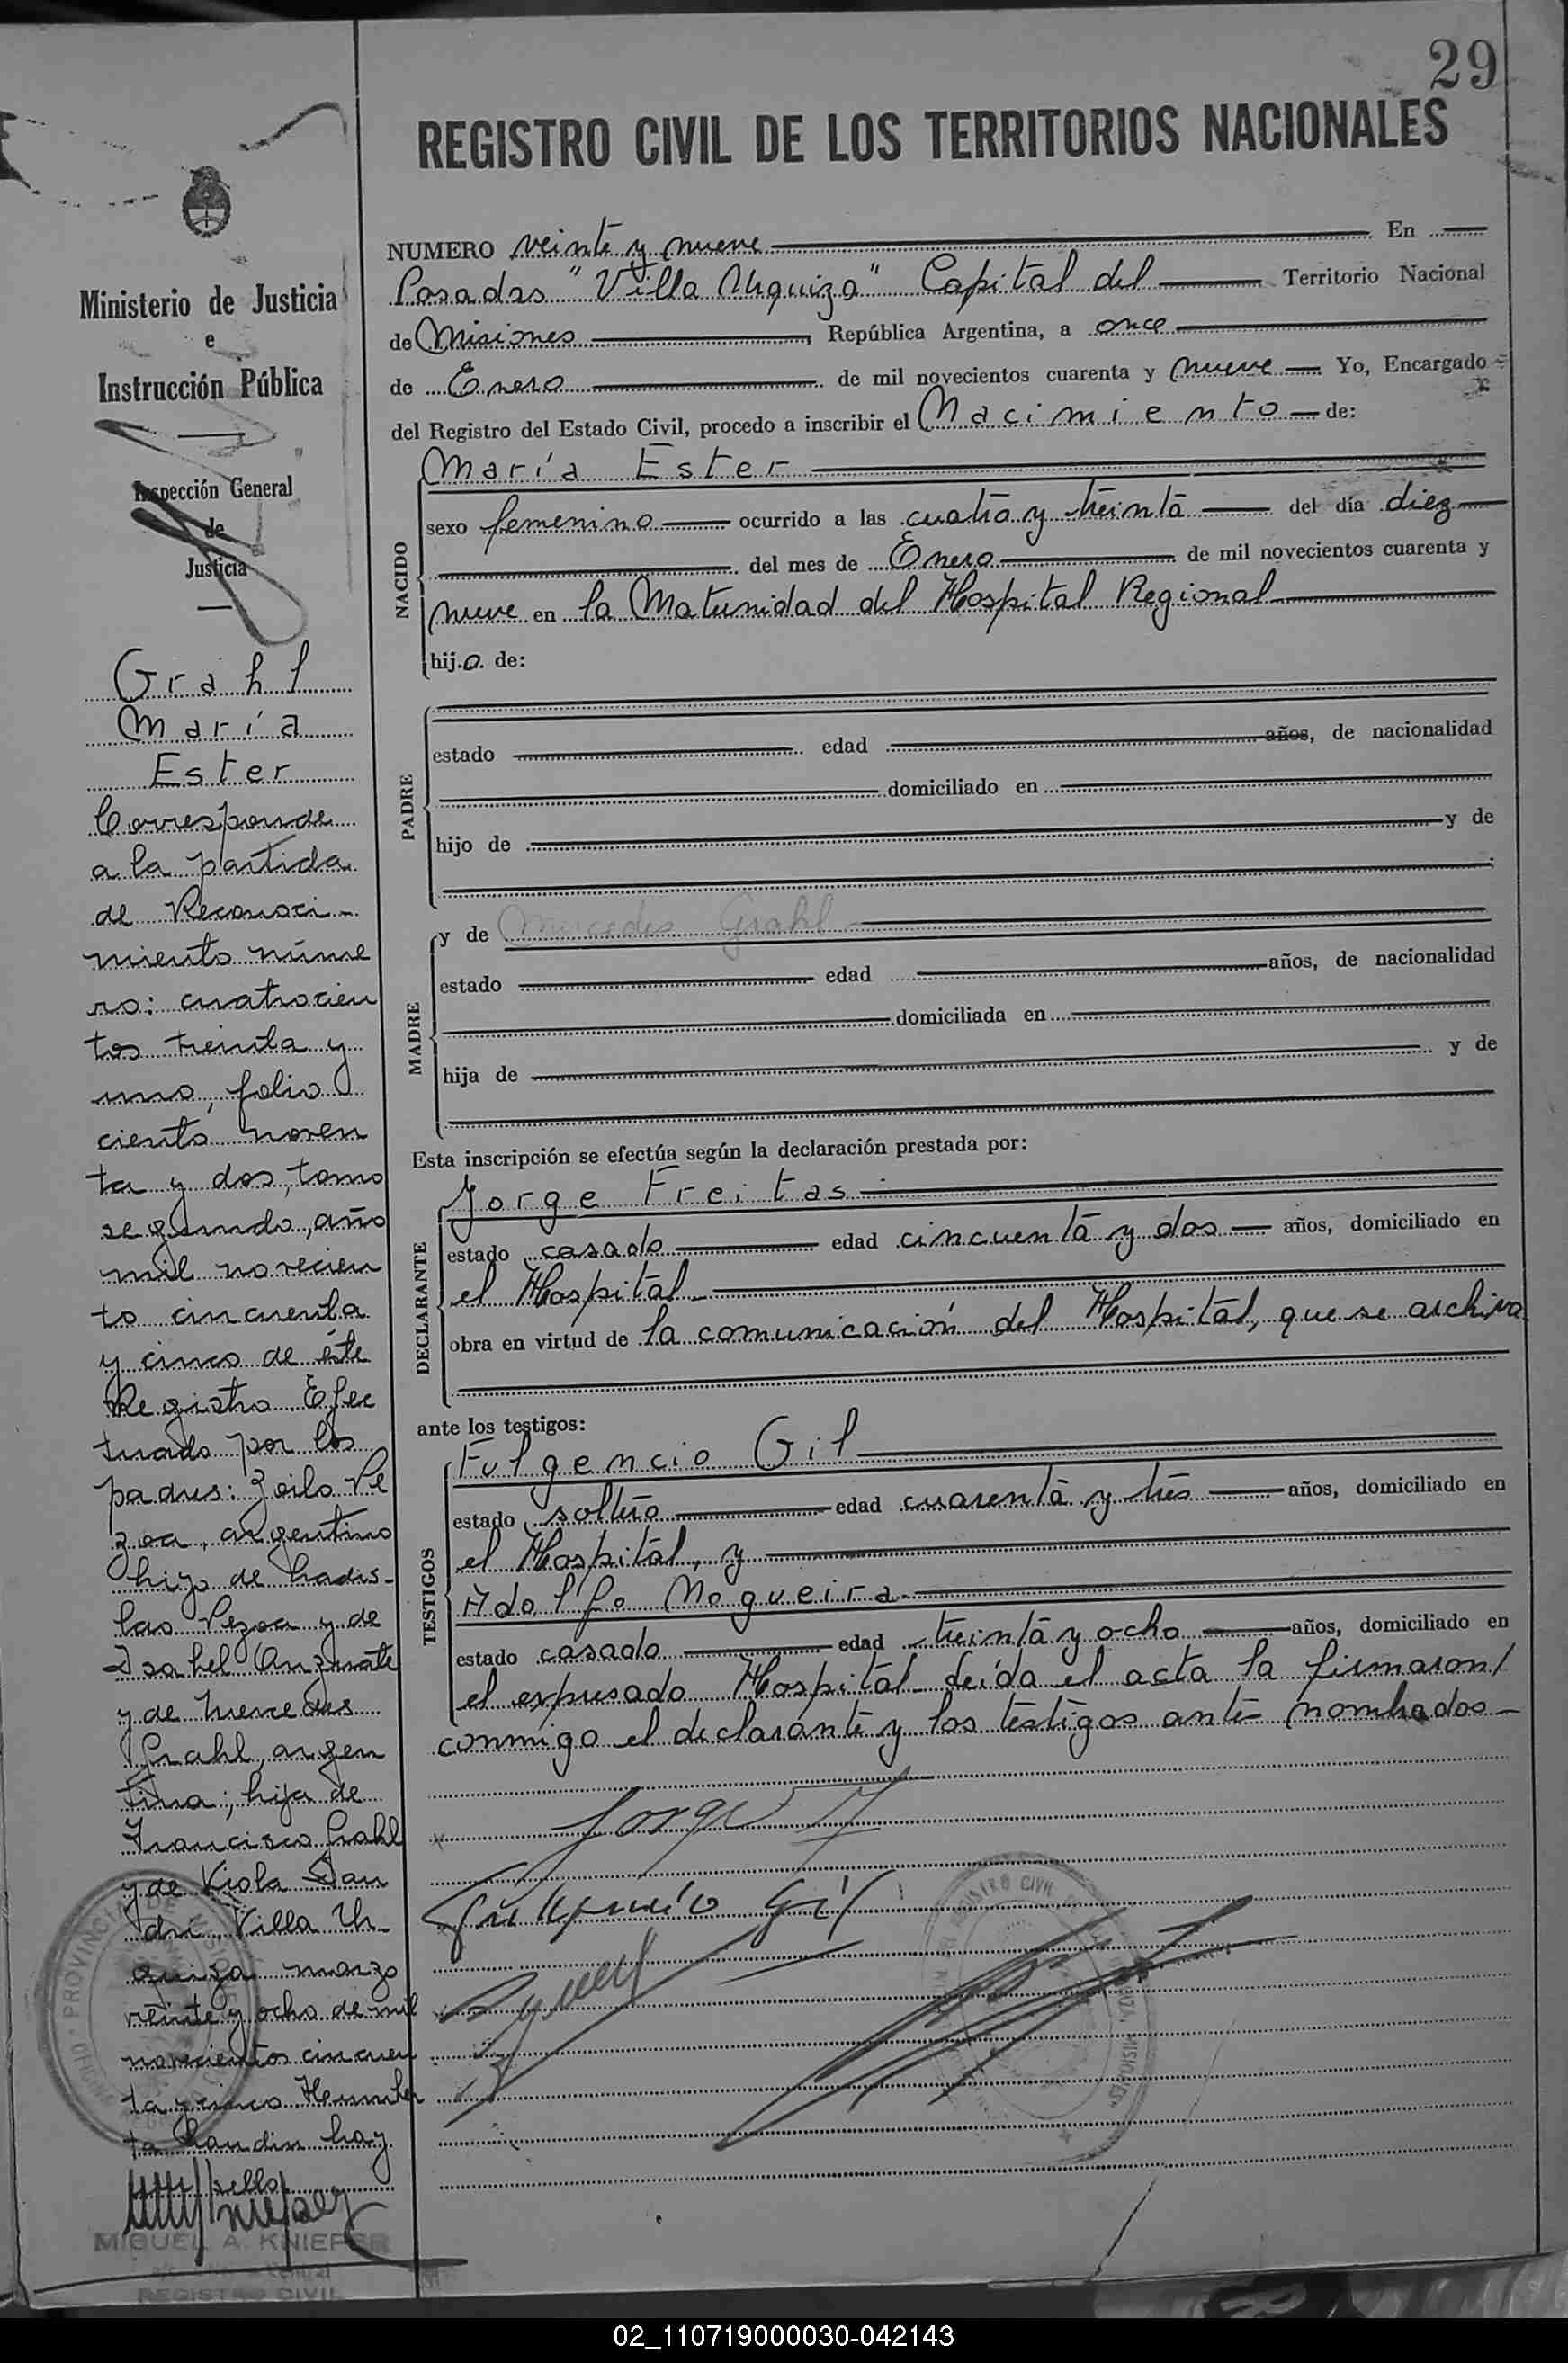 29
REGISTRO CIVIL DE LOS TERRITORIOS NACIONALES
Ministerio de Justicia
e
Instrucción Pública
Inspección General
de
Justicia
Grahl
María
Ester
Corresponde
a la partida
de Reconoci-
miento núme
ro: cuatrocien
tos treinta y
uno, folio
ciento noven
ta y dos, tomo
segundo, año
mil novecien
to cincuenta
y cinco de éste
Registro Efec
tuado por los
padres: Zoilo Pe
zoa, argentino
hijo de Ladis-
lao Pezoa y de
Isabel
y de Mercedes
Grahl, argen
tina; hija de
Francisco Grahl
y de Viola
Villa Ur-
quiza marzo
veinte y ocho de mil
novecientos cincuen
ta y cinco
hay
sello
MIGUEL A. KNIEFER
REGISTRO CIVIL
NUMERO veinte y nueve En
Posadas "Villa Urquiza" Capital del Territorio Nacional
de Misiones, República Argentina, a once
de Enero de mil novecientos cuarenta y nueve Yo, Encargado
del Registro del Estado Civil, procedo a inscribir el Nacimiento de:
NACIDO
María Ester
sexo femenino ocurrido a las cuatro y treinta del día diez
del mes de Enero de mil novecientos cuarenta y
nueve en la Maternidad del Hospital Regional
hij.a. de:
PADRE
estado edad años, de nacionalidad
domiciliado en
hijo de y de
MADRE
y de Mercedes Grahl
estado edad años, de nacionalidad
domiciliada en
hija de y de
Esta inscripción se efectúa según la declaración prestada por:
DECLARANTE
Jorge Freitas
estado casado edad cincuenta y dos años, domiciliado en
el Hospital
obra en virtud de la comunicación del Hospital, que se archiva
ante los testigos:
TESTIGOS
Fulgencio Gil
estado soltero edad cuarenta y tres años, domiciliado en
el Hospital, y
Adolfo Nogueira
estado casado edad treinta y ocho años, domiciliado en
el expresado Hospital. Leída el acta la firmaron/
conmigo el declarante y los testigos antes nombrados
Jorge F
Fulgencio Gil
02_110719000030-042143